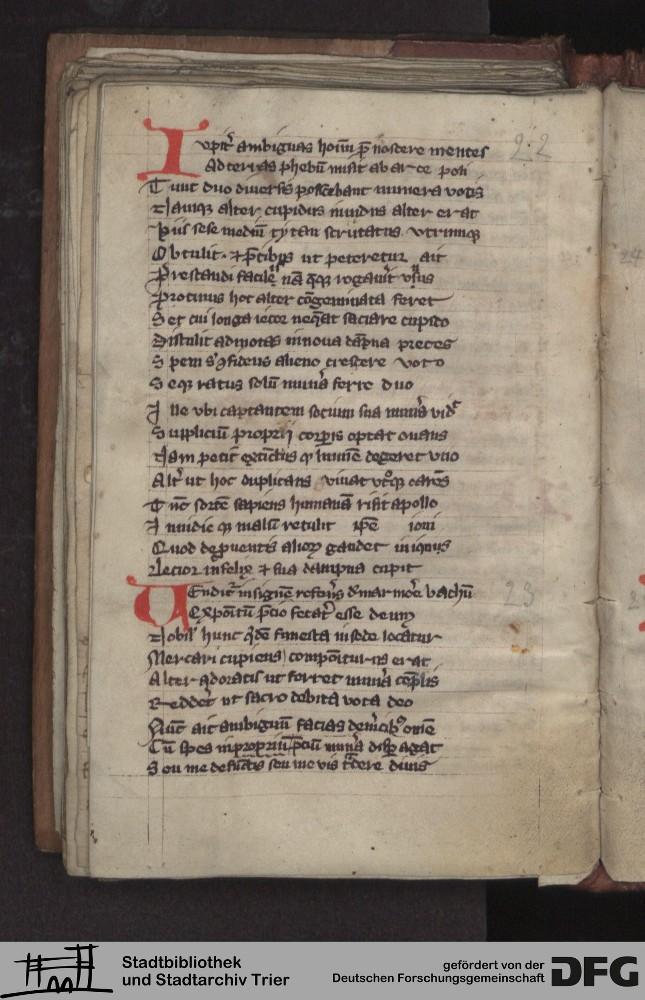 Iupit͛ ambiguas hoīm p̄ noscere mentes 22
Ad terras phebū misit ab arce poli
Tunc duo diuersis poscebant munera votis
Namq; alter cupidus inuidus alter erat
Hiis sese mediū tytan scrutatus vtrumq;
Obtulit · ⁊ p̄cibꝰ ut peteretur ait
Prestandi facilis nā q̄ rogauit vnus
Protinus hoc alter cōgeminata feret
Set cui longa iecor neq̄at saciare cupido
Distulit admotas in noua dāpna preces
Spem s' ꝯfidens alieno crescere voto
Seq; ratus solū mun̄a ferre duo
Ille vbi captantem socium sua mun̄a vidꝫ
Suppliciū proprii corp̄is optat ouans
Nam petit extinctis q lumine degeret vno
Alt͛ ut hoc duplicans viuat vtͦq; carēs
Tūc sortē sapiens humanā risit apollo
Inuidie q malū retulit ip̄e ioui
Quod de p̱uentis alioꝝ gaudet iniquus
Lecior infelix ⁊ sua dampna cupit
Uendit͛ insignē referēs d̄ marmore bachū 23
Expositū p̄cio fecat͛ esse deum
Nobilꝰ hunc q̄dē funesta in sede locatur
Mercari cupiens componiturus erat
Alter adoratis ut ferret mun̄a tēplis
Redderet ut sacro debita vota deo
Nūc ait ambiguū facias de m̄cibꝰ omē
Cū spes in propriū p̄ciū mun̄a disp̱ agat
Seu me defūctis seu me vis t̄dere diuis
24
Stadtbibliothek
und Stadtarchiv Trier
gefördert von der
Deutschen Forschungsgemeinschaft
DFG